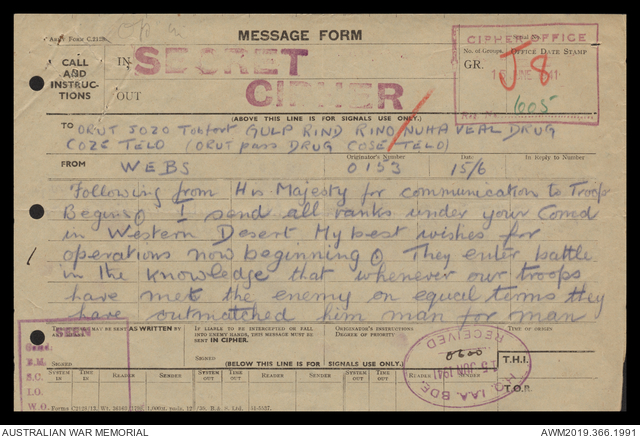 Army Form C.2128
MESSAGE FORM
CALL AND INSTRUCTIONS
IN
OUT
SECRET
CIPHER
CIPHER OFFICE
No. of Groups. OFFICE DATE STAMP
GR.
J-8
JUNE 41
605
(ABOVE THIS LINE IS FOR SIGNALS USE ONLY.)
TO ORUT JOZO Tobfort GULP RIND RINO NUHA VEAL DRUG
COZE TELO (ORUT pass DRUG COSE TELO)
FROM Originator's Number Date In Reply to Number
WEBS 0153 15/6
Following from His Majesty for communication to Troops
Begins I send all ranks under your Comd
in Western Desert My best wishes for
operations now beginning They enter battle
in the knowledge that whenever our troops
have met the enemy on equal terms they
have outmatched him man for man
THIS MESSAGE MAY BE SENT AS WRITTEN BY
IF LIABLE TO BE INTERCEPTED OR FALL INTO ENEMY HANDS, THIS MESSAGE MUST BE SENT IN CIPHER.
ORIGINATOR'S INSTRUCTIONS
DEGREE OF PRIORITY
TIME OF ORIGIN
SIGNED
SIGNED
(BELOW THIS LINE IS FOR SIGNALS USE ONLY.)
SEEN
B.M.
S.C.
I.O.
W.O.
SYSTEM IN TIME IN READER SENDER SYSTEM OUT TIME OUT READER SENDER SYSTEM OUT TIME OUT READER SENDER
T.H.I.
T.O.R.
H.Q. IAA. BDE.
0600
15 JUN 1941
RECEIVED
AUSTRALIAN WAR MEMORIAL
AWM2019.366.1991